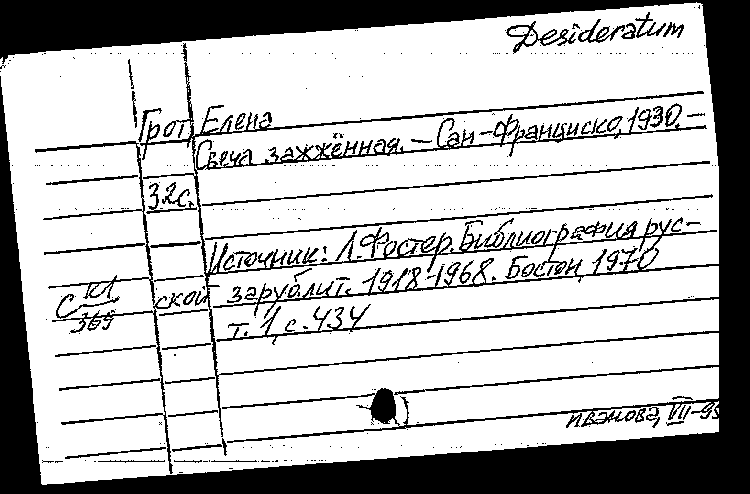 Desideratum
Грот, Елена
Свеча зажжённая. – Сан-Франциско, 1930. –
32с.
Источник: Л. Фостер. Библиография рус-
ской зарубеж. лит. 1918-1968. Бостон, 1970
т. 1, с. 434
С К1/369
Иванова, VIII-95